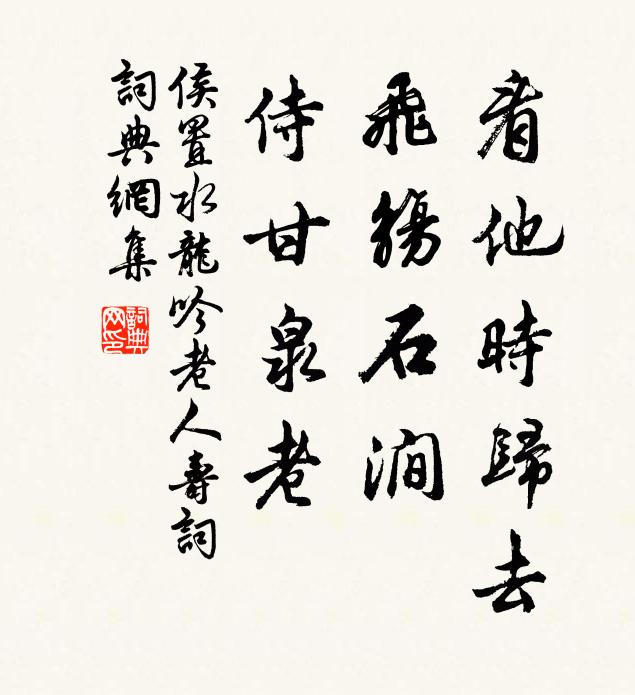 看他時歸去
飛觴石澗
侍甘泉老
侯置水龍吟老人壽詞
詞典網集
詞典网印